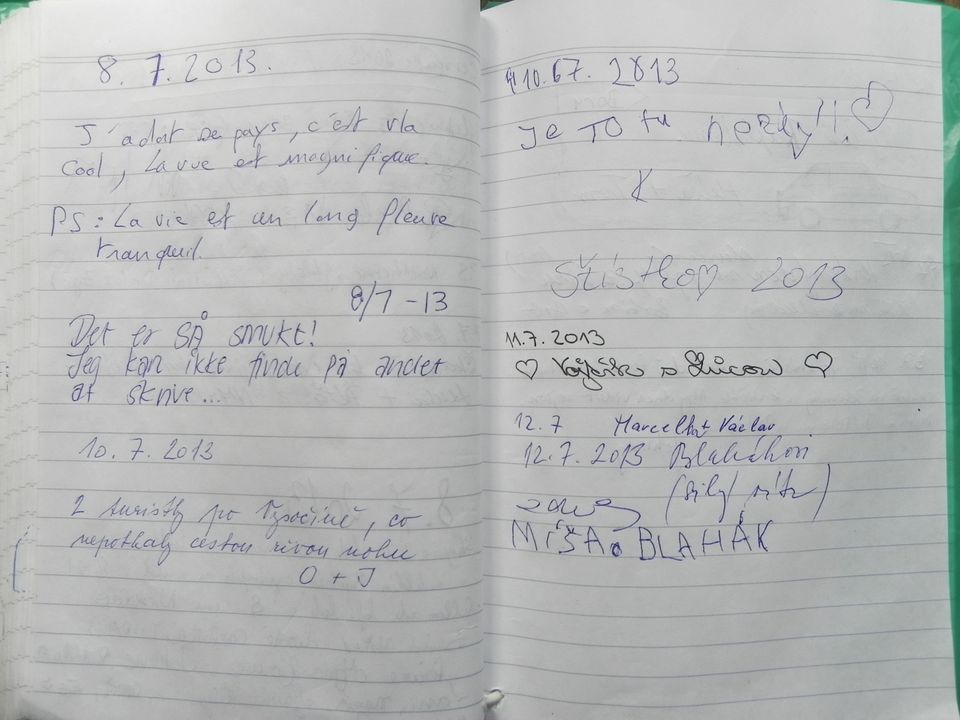 8. 7. 2013.
J'adort se pays, c'est vla
Cool, La vue et magnifique.
PS : La vie et un long fleuve
tranquil.
8/7 - 13
Det er SÅ smukt!
Jeg kan ikke finde på andet
at skrive...
10. 7. 2013
2 turistky po Vysočině, co
nepotkaly cestou živou nohu
O + J
10. 67. 2013
Je TO tu hezky!!
K
2013
11.7. 2013
♡ ♡
12.7 Marcelka + Václav
12.7. 2013 Blahákovi
MÍŠA BLAHÁK